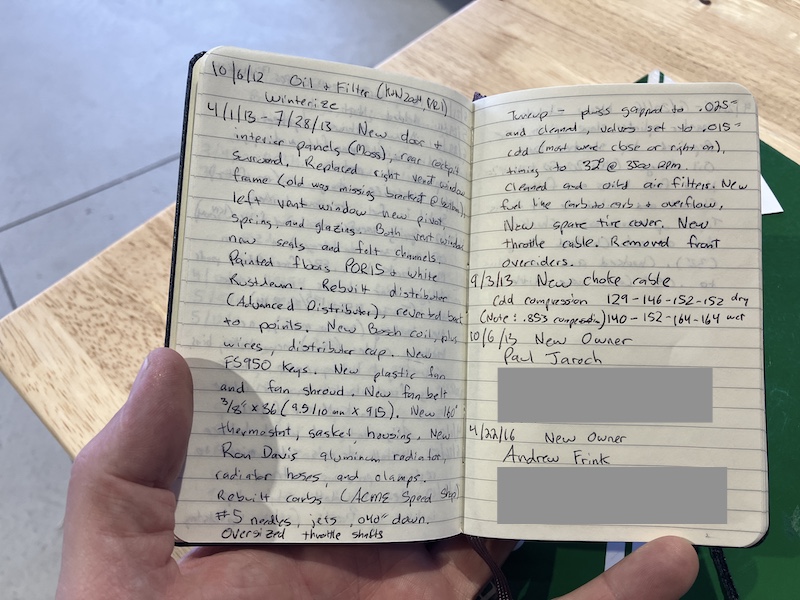 10/6/12 Oil + Filter (K+N2004, VR1)
Winterize
4/1/13 - 7/28/13 New door +
interior panels (Moss), rear cockpit
surround. Replaced right vent window
frame (old was missing bracket @ bottom),
left vent window new pivot,
spring, and glazing. Both vent window
new seals and felt channels.
Painted floors POR15 + white
Rustoleum. Rebuilt distributor
(Advanced Distributor), reverted back
to points. New Bosch coil, plugs
wires, distributor cap. New
FS950 keys. New plastic fan
and fan shroud. New fan belt
3/8" x 36 (9.5/10 mm x 915). New 160°
thermostat, gasket, housing. New
Ron Davis aluminum radiator,
radiator hoses, and clamps.
Rebuilt carbs (Acme Speed Shop)
#5 needles, jets .040" down.
Oversized throttle shafts
Tuneup - plugs gapped to .025"
and cleaned, valves set to .015"
cold (most were close or right on),
timing to 32° @ 3500 RPM.
Cleaned and oiled air filters. New
fuel line carb to carb + overflow.
New spare tire cover. New
throttle cable. Removed front
overriders.
9/3/13 New choke cable
Cold compression 129-146-152-152 dry
(Note: .853 compression) 140-152-164-164 wet
10/6/13 New Owner
Paul Jaroch
4/22/16 New Owner
Andrew Frink